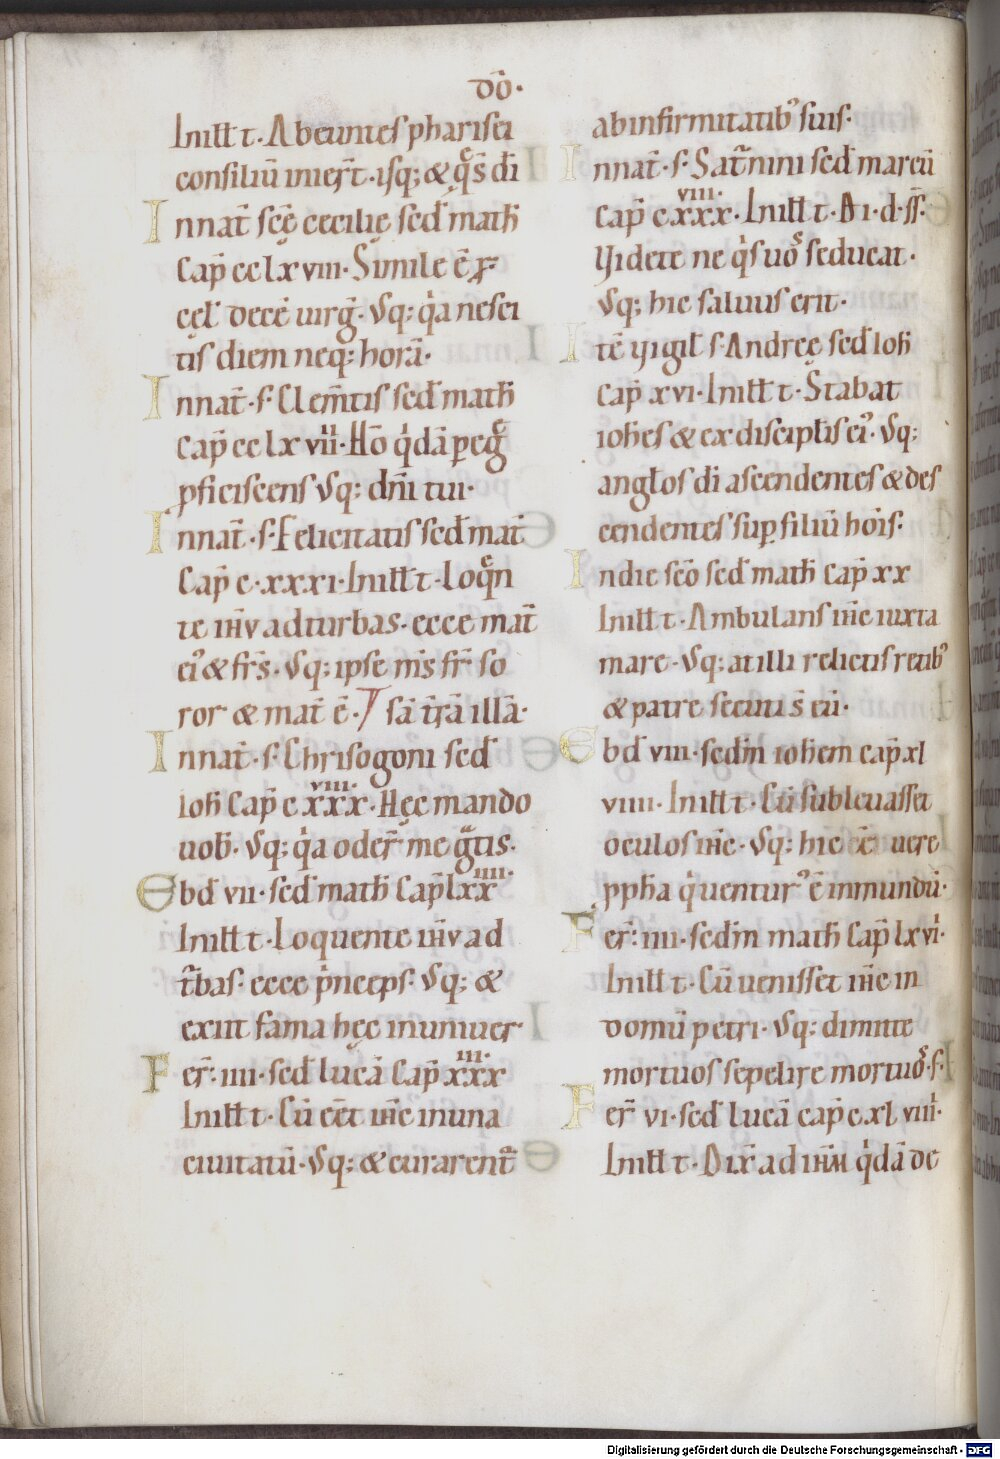 DŌ·
Iniɫɫ t· Abeuntes pharisei
consiliū inier̄t· usq; & q̄ s̄ dī
Innat̄ scę̄ cecilię sed̄ math̄
cap̄ cc lxviii· Simile ē r̄
cęl̄ decē uirḡ· Vsq; q̄a nesci
tis diem neq; horā·
Innat̄· s· Clem̄tis sed̄ math̄
cap̄ cc lxvii· Hō q'dā p̱egͤ
p̱ficiscens Vsq; dn̄i tui·
Innat̄· s· Felicitatis sed̄ mat̄
Cap̄ c· xxxi· Iniɫɫ t· Loqͤn
te ih̄u ad turbas· ecce mat̄
ei' & fr̄s· Vsq; ipse m̄s fr̄ so
ror & mat̄ ē· / sā t̄rā illā·
Innat̄· s· Chrisogoni sed̄
ioh̄ Cap̄ c xxxviii· Hęc mando
uob̄· Vsq; q'a oder̄ me gͣtis·
Ebd̄ vii· sed̄ math̄ Cap̄ lxxiiii·
Iniɫɫ t· Loquente ih̄u ad
t̄bas· ecce p'nceps· Vsq; &
exiit fama hęc inuniuer
Fer̄· iiii· sed̄ lucā Cap̄ xxxiii·
Iniɫɫ t· Cū eēt ih̄c inuna
ciuitatū· Vsq; & curarent̄
abinfirmitatib' suis·
Innat̄· s· Sat̄nini sed̄ marcū
cap̄ cxxxviii· Iniɫɫ t· Di· d· s̄s̄·
Videte ne q's uoˢ seducat·
Vsq; hic saluus erit·
Itē vigil̄ s· Andreę sed̄ ioh̄
Cap̄ xvi· Iniɫɫ t· Stabat
ioh̄es & ex discipɫis ei'· Vsq;
angɫos dī ascendentes & des
cendentes sup̱ filiū hōis·
Indie scō sed̄ math̄ cap̄ xx
Iniɫɫ t· Ambulans ih̄c iuxta
mare· Vsq; at illi relictis retib'
& patre secuti s̄ eū·
Ebd̄ viii· sed̄m ioh̄em cap̄ xl
viiii· Iniɫɫ t· Cū subleuasset
oculos ih̄c· Vsq; hic ē uere
p̱ph̄a q'uentur' ē inmundū·
Fer̄· iiii· sed̄m math̄ Cap̄ lxvi·
Iniɫɫ t· Cū uenisset ih̄c in
domū petri· Vsq; dimitte
mortuos sepelire mortuoˢ· s·
Fer̄ vi· sed̄ lucā cap̄ c xl viii·
Iniɫɫ t· Dix̄ ad ih̄m q'dā de
Digitalisierung gefördert durch die Deutsche Forschungsgemeinschaft - DFG